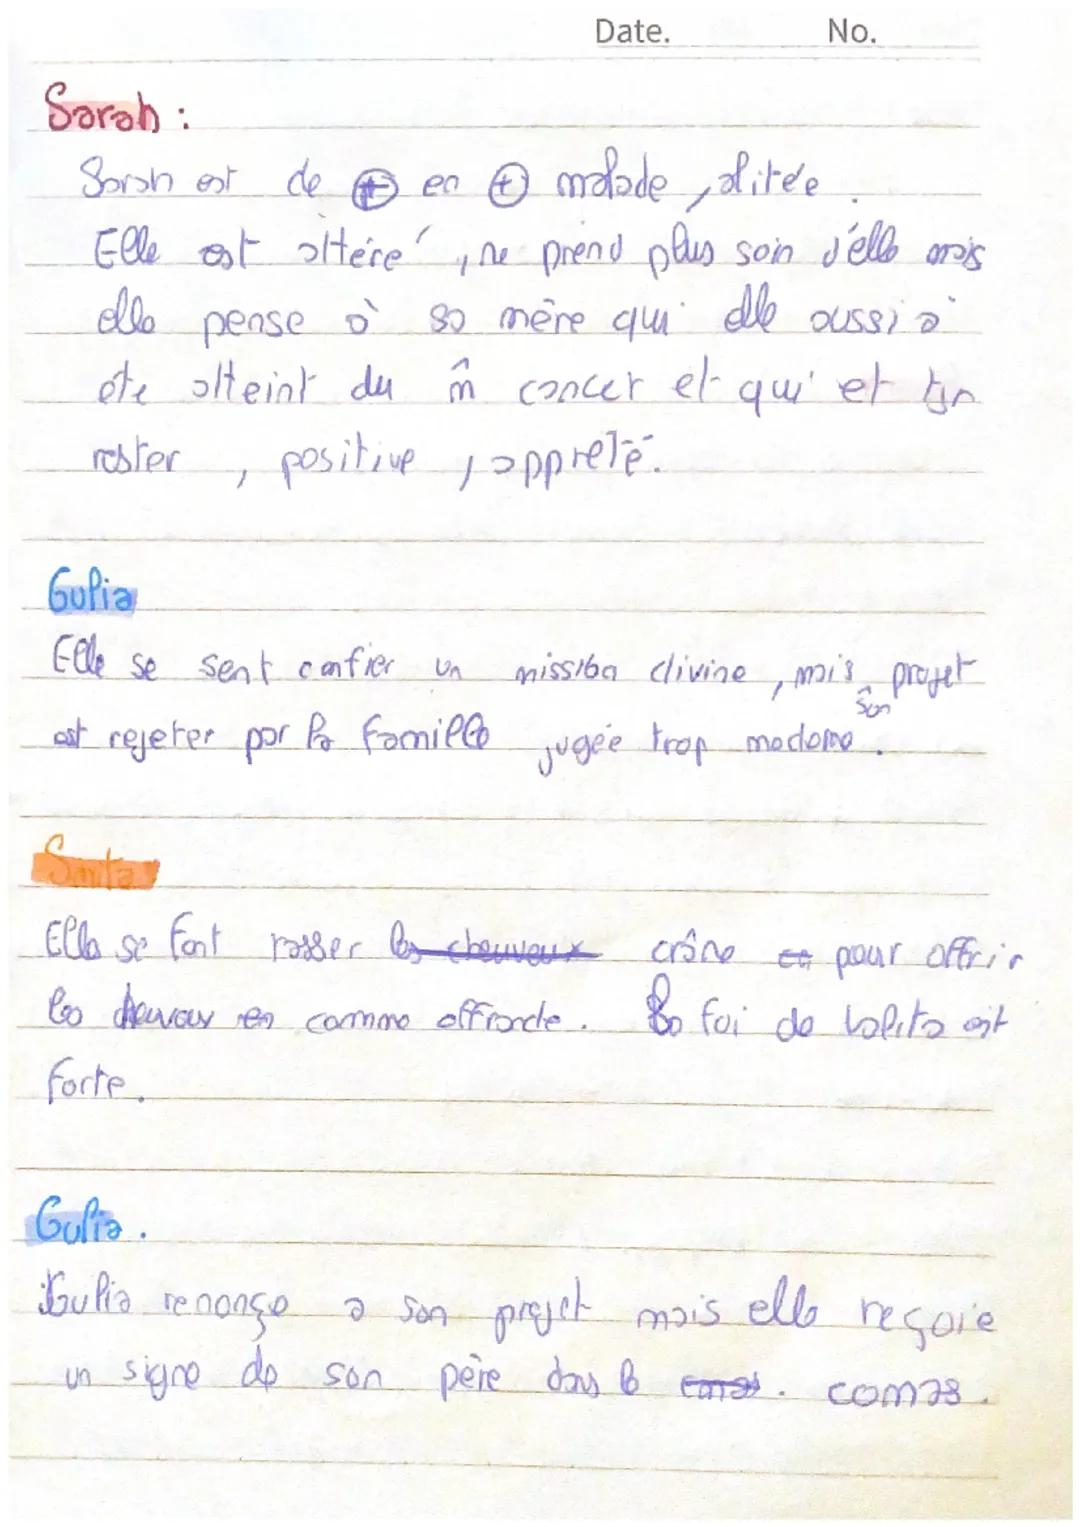 Date. No.
Sarah :
Sarah est de ⊕ en ⊕ malade, alitée.
Elle est altéré, ne prend plus soin d'elle mais
elle pense à sa mère qui elle aussi a
ete atteint du m̂ cancer et qui et
rester , positive , appreté.
Gulia
Elle se sent confier un mission divine , mais son projet
est rejeter par la famille jugée trop moderne.
Smita
Elle se font rasser les cheuveux crâne pour offrir
les cheveux en comme offrande. La foi de Lalita est
forte.
Gulia.
Gulia renonçe a son projet mais elle reçoie
un signe de son père dans le comas.